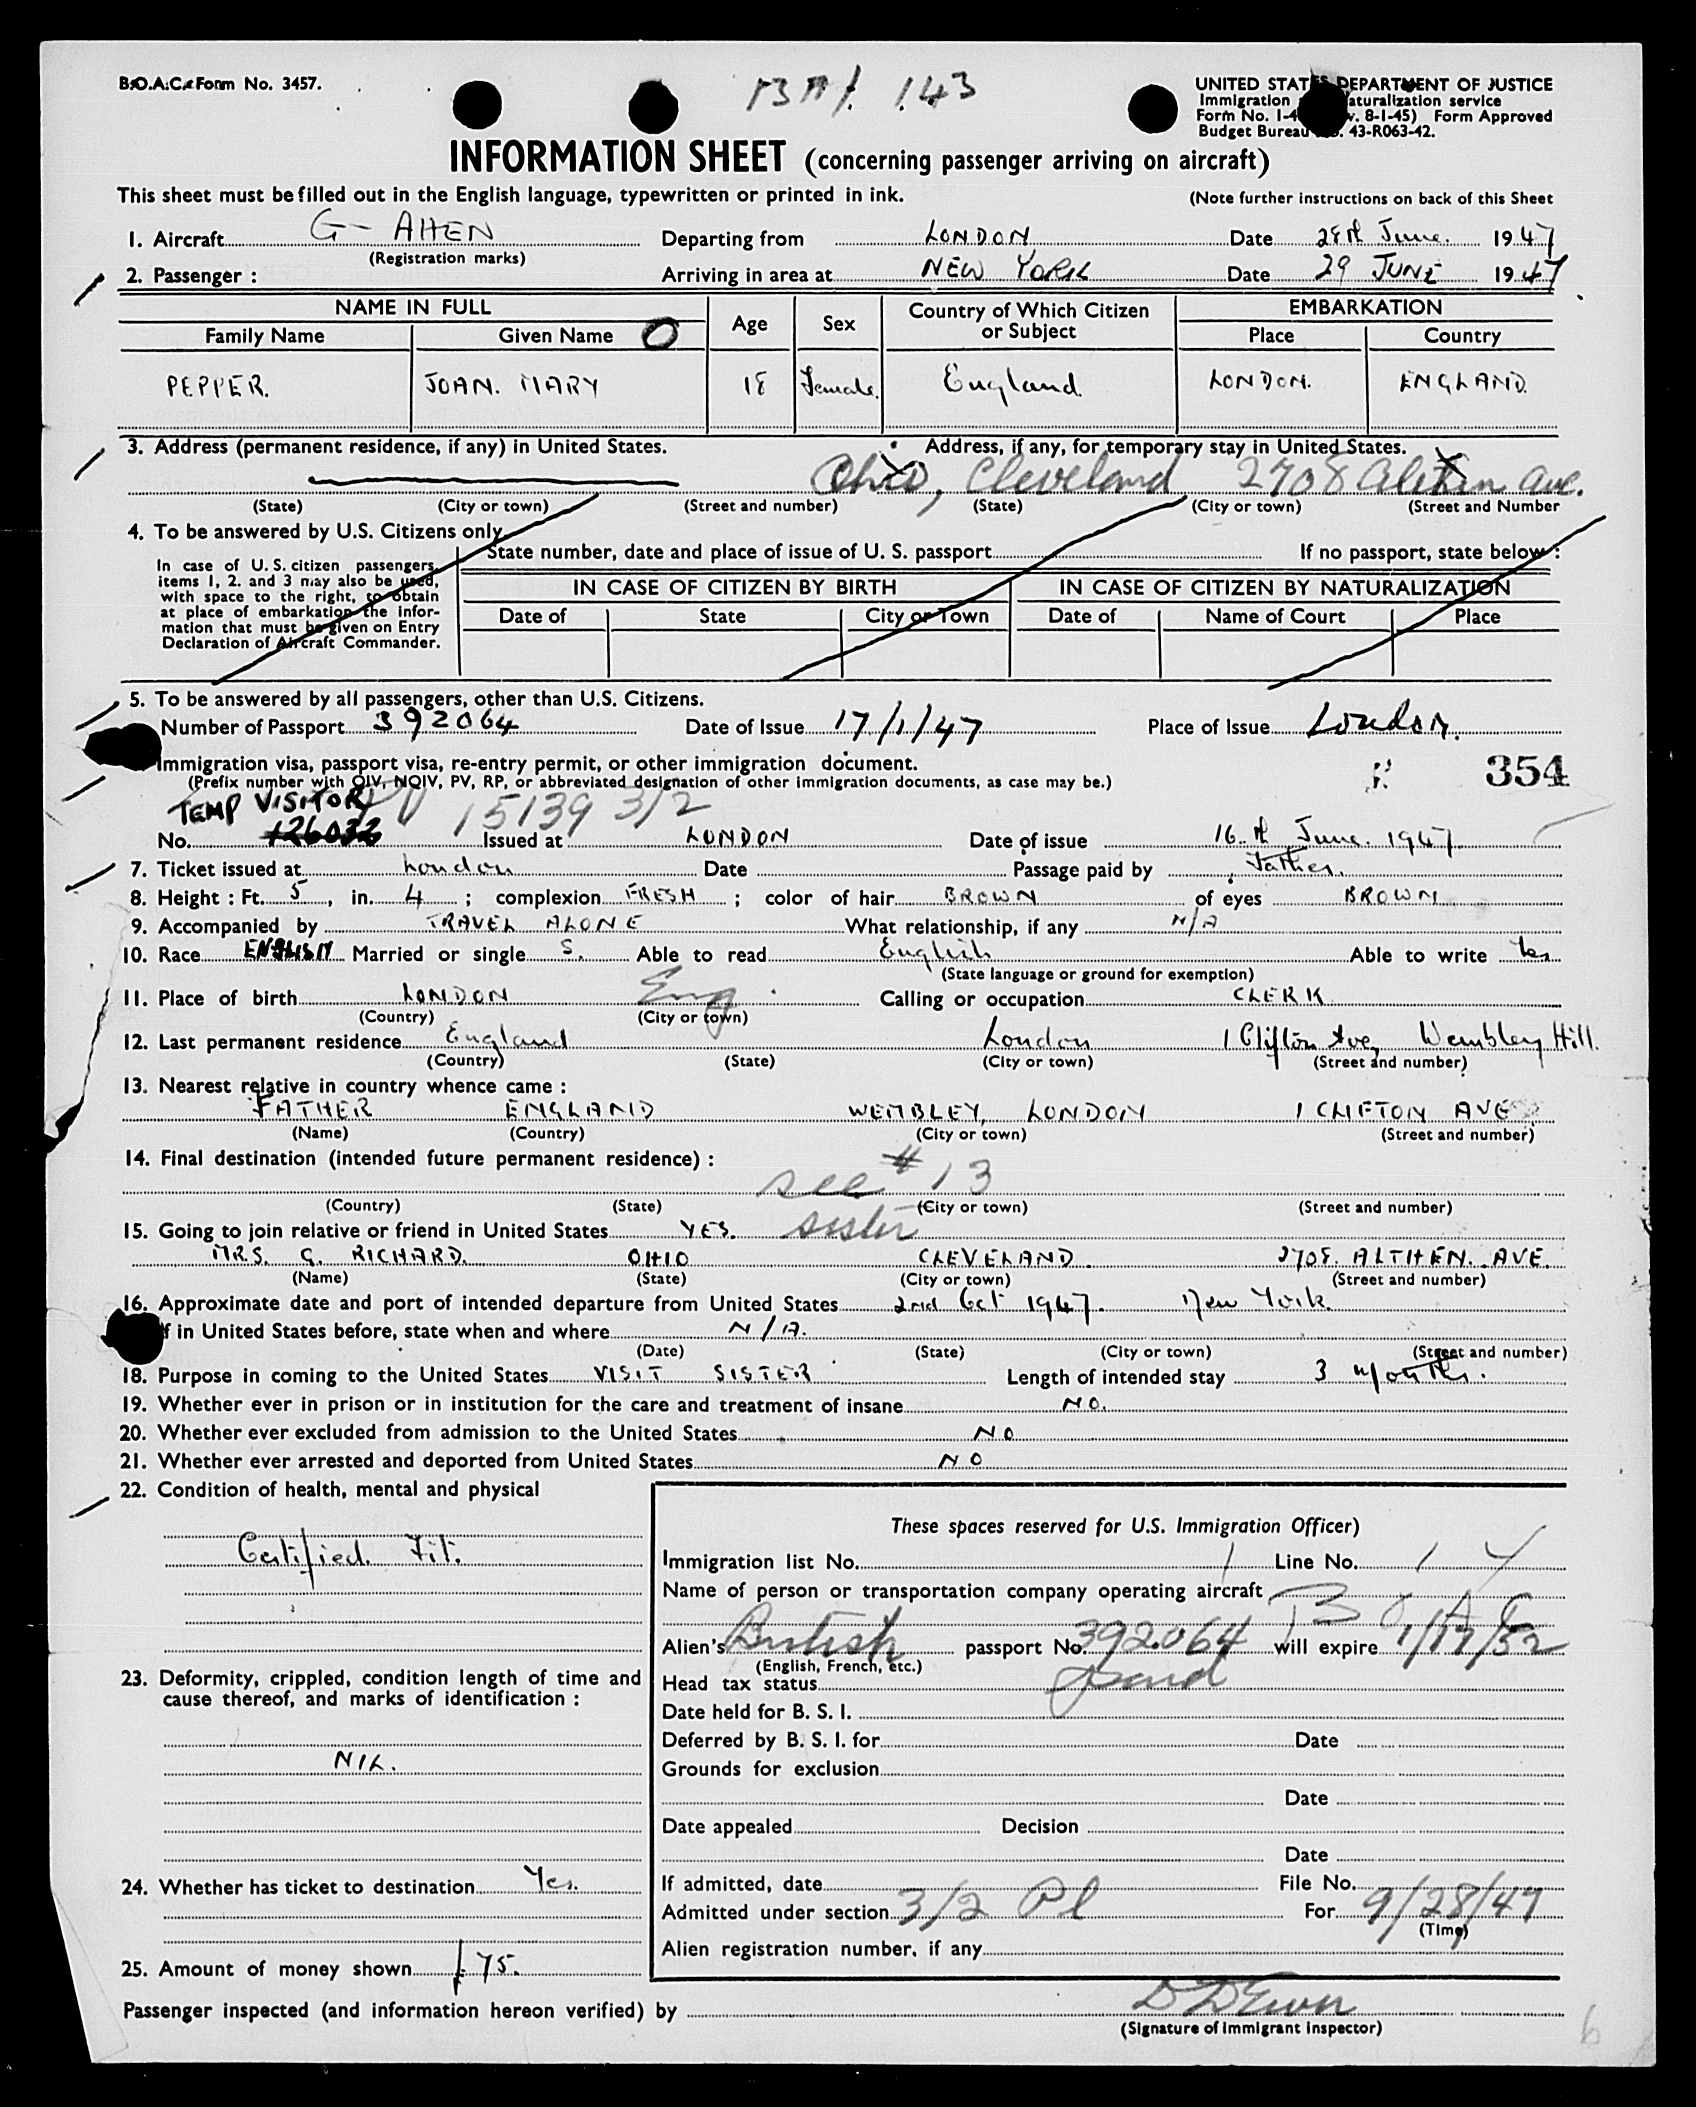 B.O.A.C. Form No. 3457.
143
UNITED STATES DEPARTMENT OF JUSTICE
Immigration aturalization service
Form No. I-4 v. 8-1-45) Form Approved
Budget Bureau 43-R063-42.
INFORMATION SHEET (concerning passenger arriving on aircraft)
This sheet must be filled out in the English language, typewritten or printed in ink. (Note further instructions on back of this Sheet
1. Aircraft G-AHEN Departing from LONDON Date 28th June. 1947
(Registration marks)
2. Passenger : Arriving in area at NEW YORK Date 29 JUNE 1947
NAME IN FULL Age Sex Country of Which Citizen or Subject EMBARKATION
Family Name Given Name Place Country
PEPPER. JOAN. MARY 18 Female. England LONDON. ENGLAND.
3. Address (permanent residence, if any) in United States. Address, if any, for temporary stay in United States.
Ohio, Cleveland 2708 Ave.
(State) (City or town) (Street and number) (State) (City or town) (Street and Number
4. To be answered by U.S. Citizens only.
State number, date and place of issue of U. S. passport If no passport, state below :
In case of U. S. citizen passengers,
items 1, 2. and 3 may also be used,
with space to the right, to obtain
at place of embarkation the infor-
mation that must be given on Entry
Declaration of Aircraft Commander.
IN CASE OF CITIZEN BY BIRTH IN CASE OF CITIZEN BY NATURALIZATION
Date of State City or Town Date of Name of Court Place
5. To be answered by all passengers, other than U.S. Citizens.
Number of Passport 392064 Date of Issue 17/1/47 Place of Issue London.
Immigration visa, passport visa, re-entry permit, or other immigration document.
354
(Prefix number with QIV, NQIV, PV, RP, or abbreviated designation of other immigration documents, as case may be.)
TEMP VISITOR PV 15139 3/2
No. 126032 Issued at LONDON Date of issue 16th June. 1947
7. Ticket issued at London Date Passage paid by Father.
8. Height : Ft. 5, in. 4 ; complexion FRESH ; color of hair BROWN of eyes BROWN
9. Accompanied by TRAVEL ALONE What relationship, if any N/A
10. Race ENGLISH Married or single S. Able to read English Able to write Yes
(State language or ground for exemption)
11. Place of birth LONDON Eng. Calling or occupation CLERK
(Country) (City or town)
12. Last permanent residence England London 1 Clifton Ave, Wembley Hill.
(Country) (State) (City or town) (Street and number)
13. Nearest relative in country whence came :
FATHER ENGLAND WEMBLEY, LONDON 1 CLIFTON AVE
(Name) (Country) (City or town) (Street and number)
14. Final destination (intended future permanent residence) :
see #13
(Country) (State) (City or town) (Street and number)
15. Going to join relative or friend in United States YES. sister
MRS. G. RICHARD. OHIO CLEVELAND. 2708. ALTHEN. AVE.
(Name) (State) (City or town) (Street and number)
16. Approximate date and port of intended departure from United States 2nd Oct 1947. New York.
f in United States before, state when and where N/A.
(Date) (State) (City or town) (Street and number)
18. Purpose in coming to the United States VISIT SISTER Length of intended stay 3 months.
19. Whether ever in prison or in institution for the care and treatment of insane NO.
20. Whether ever excluded from admission to the United States NO
21. Whether ever arrested and deported from United States NO
22. Condition of health, mental and physical
Certified Fit.
These spaces reserved for U.S. Immigration Officer)
Immigration list No. 1 Line No. 1
Name of person or transportation company operating aircraft
B O A C
Alien's British passport No. 392064 will expire 1/17/52
(English, French, etc.)
Head tax status paid
Date held for B. S. I.
Deferred by B. S. I. for Date
Grounds for exclusion
Date
Date appealed Decision
Date
If admitted, date File No.
Admitted under section 3/2 For 9/28/47
(Time)
Alien registration number, if any
23. Deformity, crippled, condition length of time and
cause thereof, and marks of identification :
NIL.
24. Whether has ticket to destination Yes.
25. Amount of money shown £75.
Passenger inspected (and information hereon verified) by
(Signature of Immigrant Inspector)
6